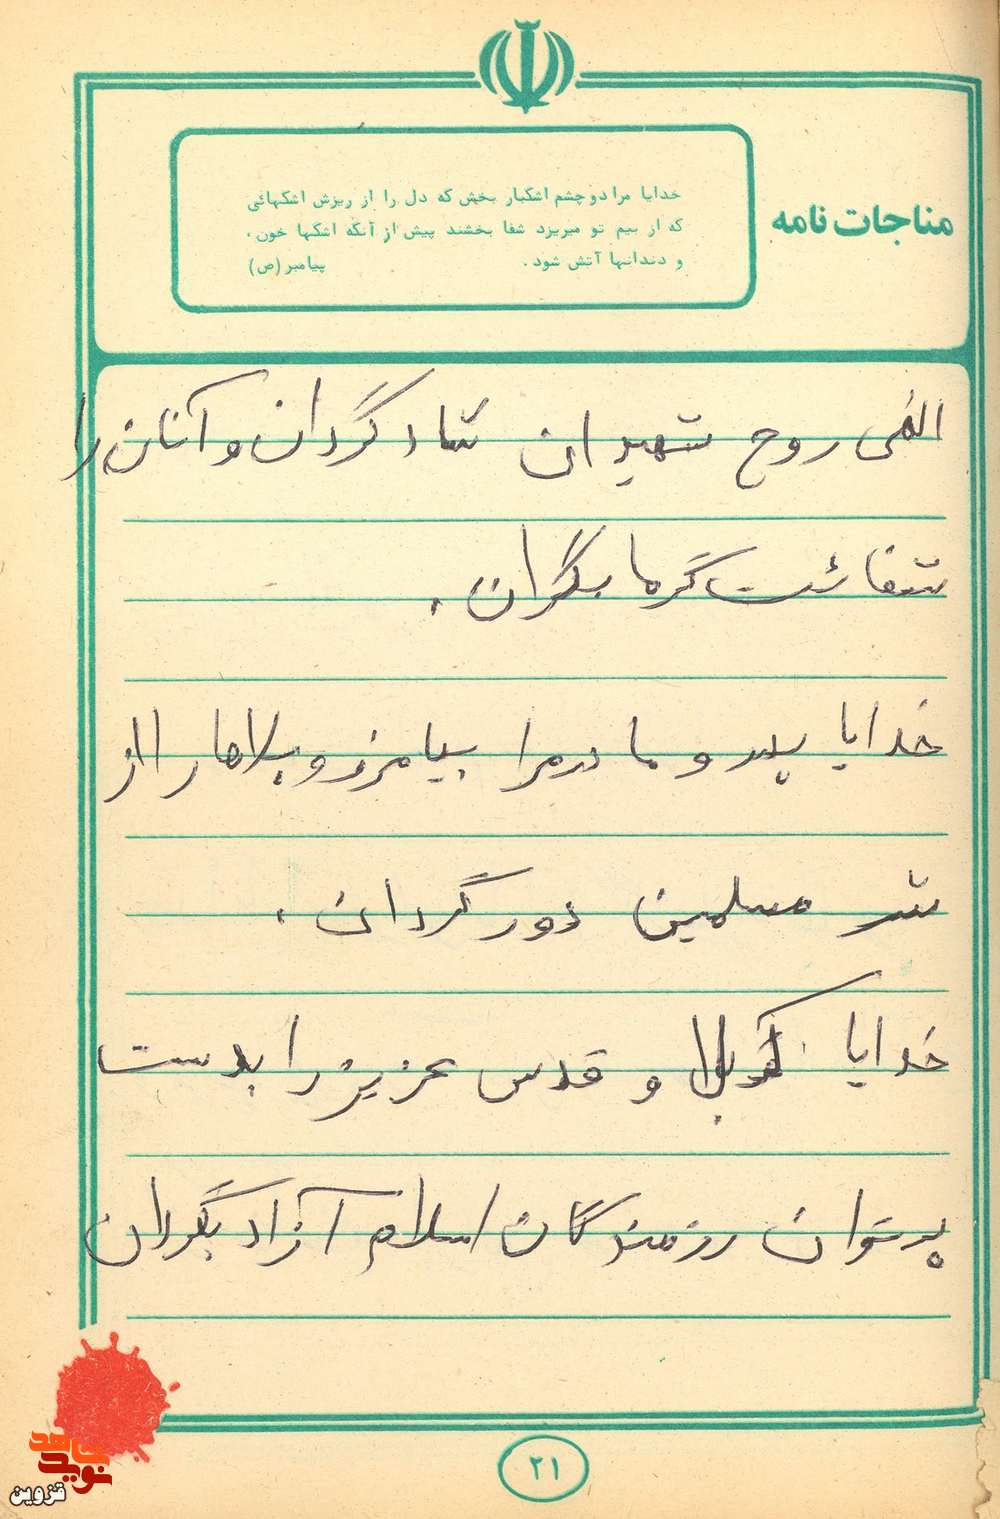 مناجات نامه
خدایا مرا دو چشم اشکبار بخش که دل را از ریزش اشکهائی
که از بیم تو میریزد شفا بخشند پیش از آنکه اشکها خون،
و دندانها آتش شود. پیامبر (ص)
الهی روح شهیدان شاد گردان و آنان را
شفائت گر ما بگران .
خدایا پدر و مادر مرا بیامرز و بلاها را از
شر مسلمین دور گردان .
خدایا کربلا و قدس عزیز را بدست
پرتوان رزمندگان اسلام آزاد بگردان
۲۱
نوید شاهد
قزوین